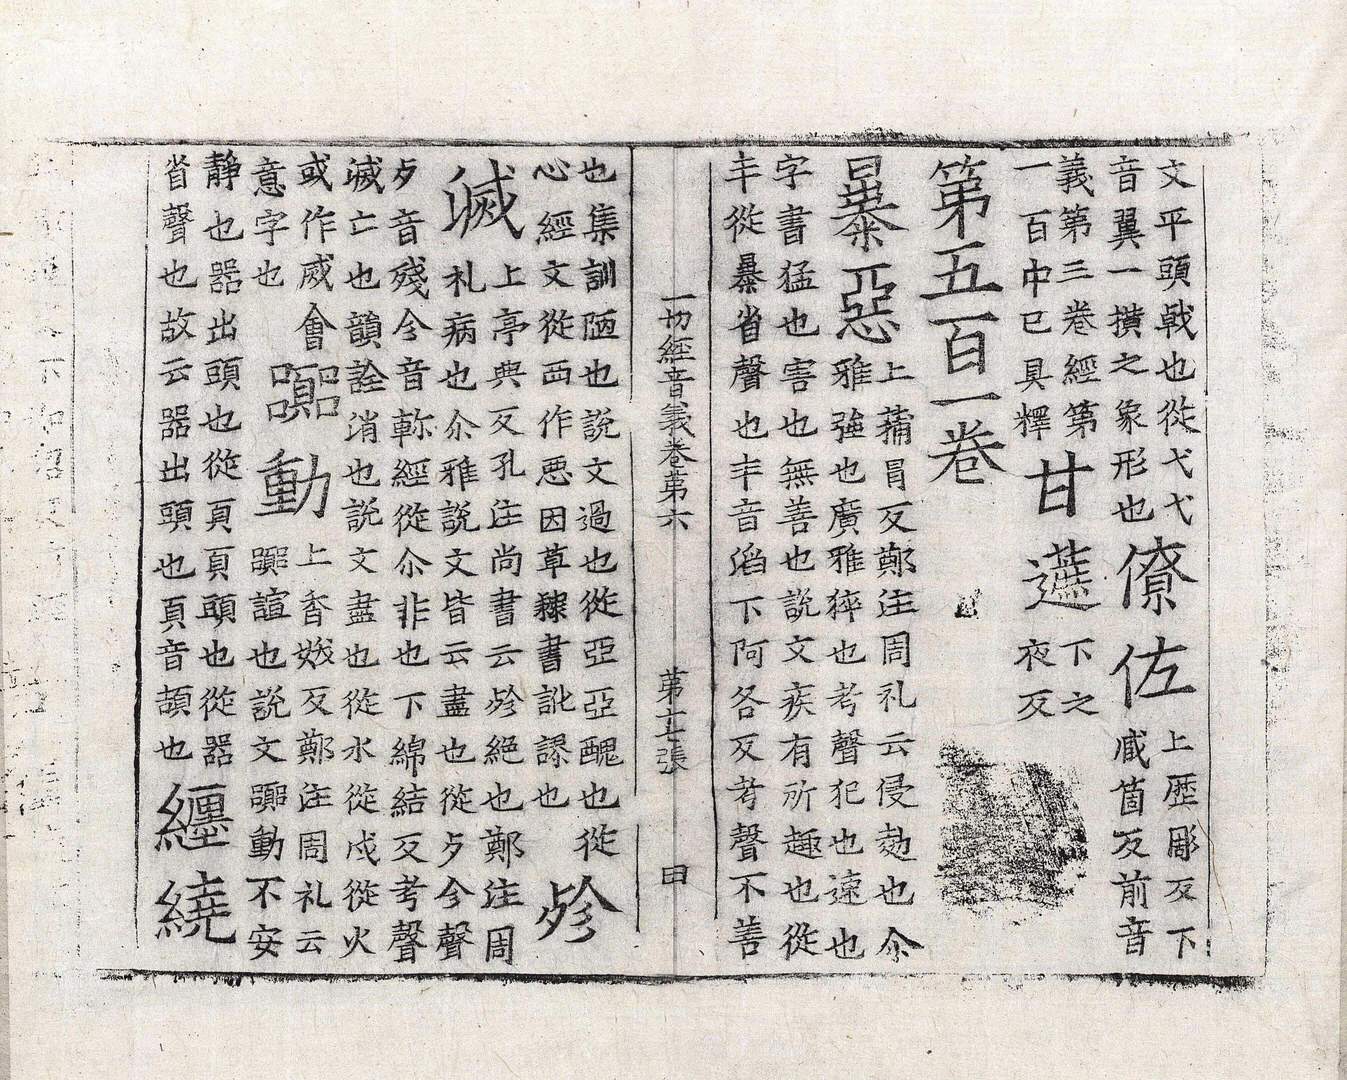 文平頭戟也從弋弋
音翼一撗之象形也
僚佐
上歴彫反下
臧箇反前音
義第三卷經第
一百中已具釋
甘
下之
夜反
第五百一卷
暴惡
上蒱冒反鄭注周礼云侵也尒
雅強也廣雅猝也考聲犯也速也
字書猛也害也無善也説文疾有所趣也從
丰從暴省聲也丰音滔下阿各反考聲不善
一切經音義卷第六
第十七張
田
也集訓陋也説文過也從亞亞醜也從
心經文從西作悪因草隷書訛謬也
殄
滅
上亭典反孔注尚書云殄絕也鄭注周
礼病也尒雅説文皆云盡也從歹㐱聲
歹音殘㐱音軫經從尒非也下綿結反考聲
滅亡也韻詮消也説文盡也從水從戌從火
或作烕會
意字也
嚻動
上香妖反鄭注周礼云
嚻諠也説文嚻動不安
靜也㗊出頭也從頁頁頭也從㗊
省聲也故云㗊出頭也頁音頡也
纏繞